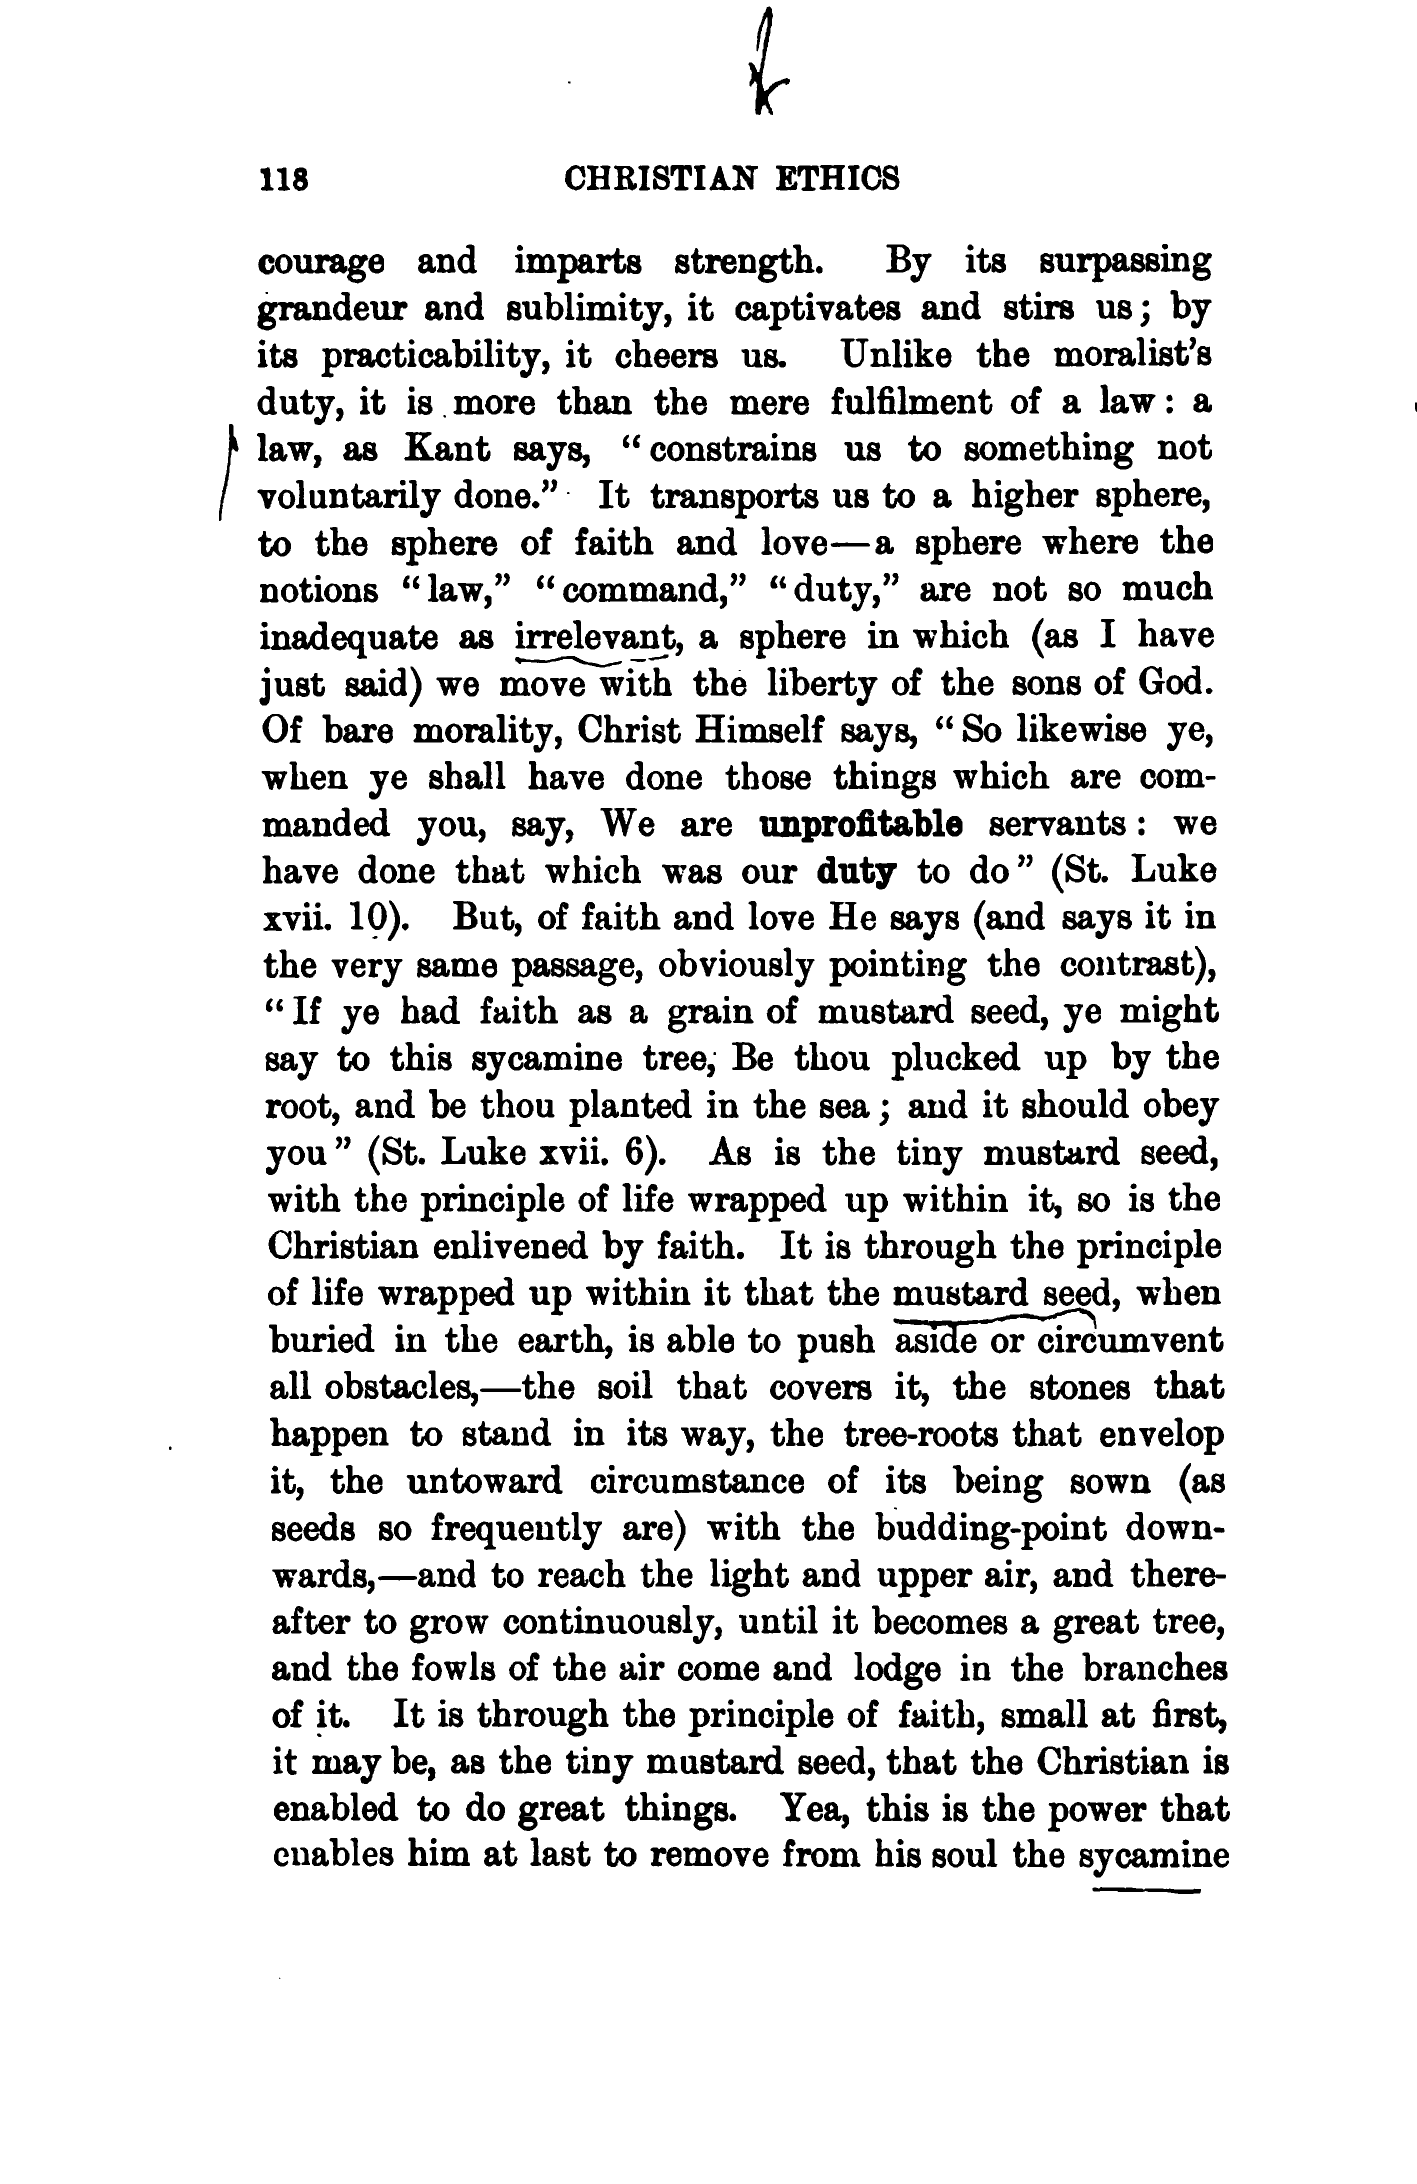 118 CHRISTIAN ETHICS
courage and imparts strength. By its surpassing
grandeur and sublimity, it captivates and stirs us; by
its practicability, it cheers us. Unlike the moralist's
duty, it is more than the mere fulfilment of a law: a
law, as Kant says, "constrains us to something not
voluntarily done." It transports us to a higher sphere,
to the sphere of faith and love—a sphere where the
notions "law," "command," "duty," are not so much
inadequate as irrelevant, a sphere in which (as I have
just said) we move with the liberty of the sons of God.
Of bare morality, Christ Himself says, "So likewise ye,
when ye shall have done those things which are com-
manded you, say, We are unprofitable servants: we
have done that which was our duty to do" (St. Luke
xvii. 10). But, of faith and love He says (and says it in
the very same passage, obviously pointing the contrast),
"If ye had faith as a grain of mustard seed, ye might
say to this sycamine tree, Be thou plucked up by the
root, and be thou planted in the sea; and it should obey
you" (St. Luke xvii. 6). As is the tiny mustard seed,
with the principle of life wrapped up within it, so is the
Christian enlivened by faith. It is through the principle
of life wrapped up within it that the mustard seed, when
buried in the earth, is able to push aside or circumvent
all obstacles,—the soil that covers it, the stones that
happen to stand in its way, the tree-roots that envelop
it, the untoward circumstance of its being sown (as
seeds so frequently are) with the budding-point down-
wards,—and to reach the light and upper air, and there-
after to grow continuously, until it becomes a great tree,
and the fowls of the air come and lodge in the branches
of it. It is through the principle of faith, small at first,
it may be, as the tiny mustard seed, that the Christian is
enabled to do great things. Yea, this is the power that
enables him at last to remove from his soul the sycamine